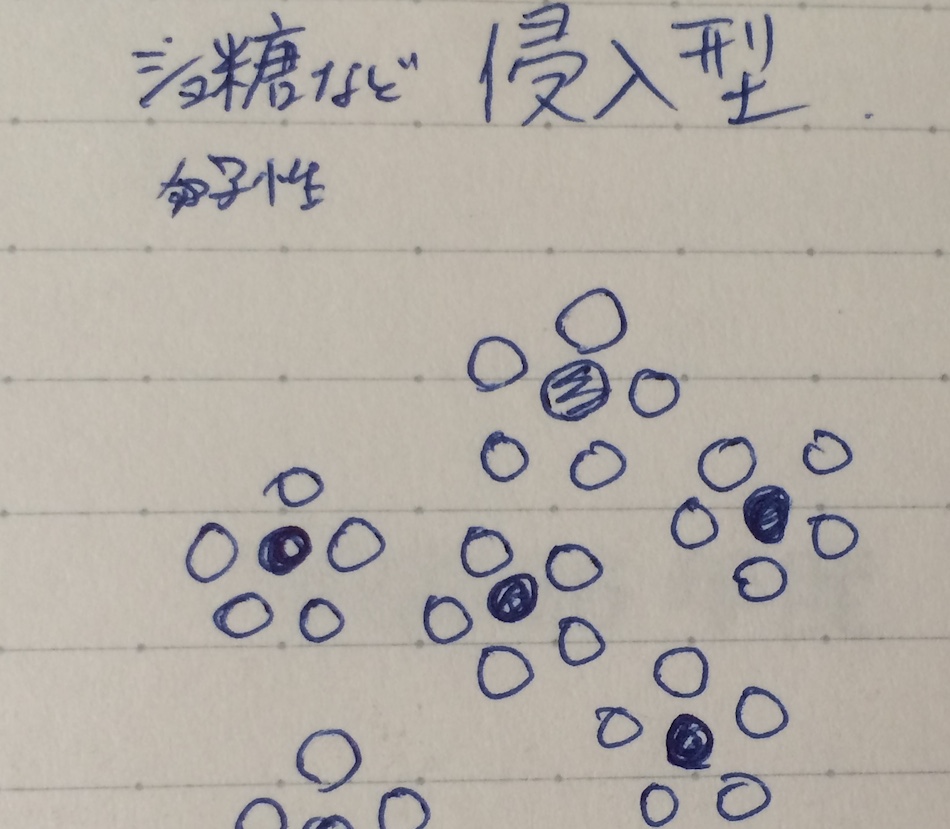 ショ糖など 侵入型.
分子性